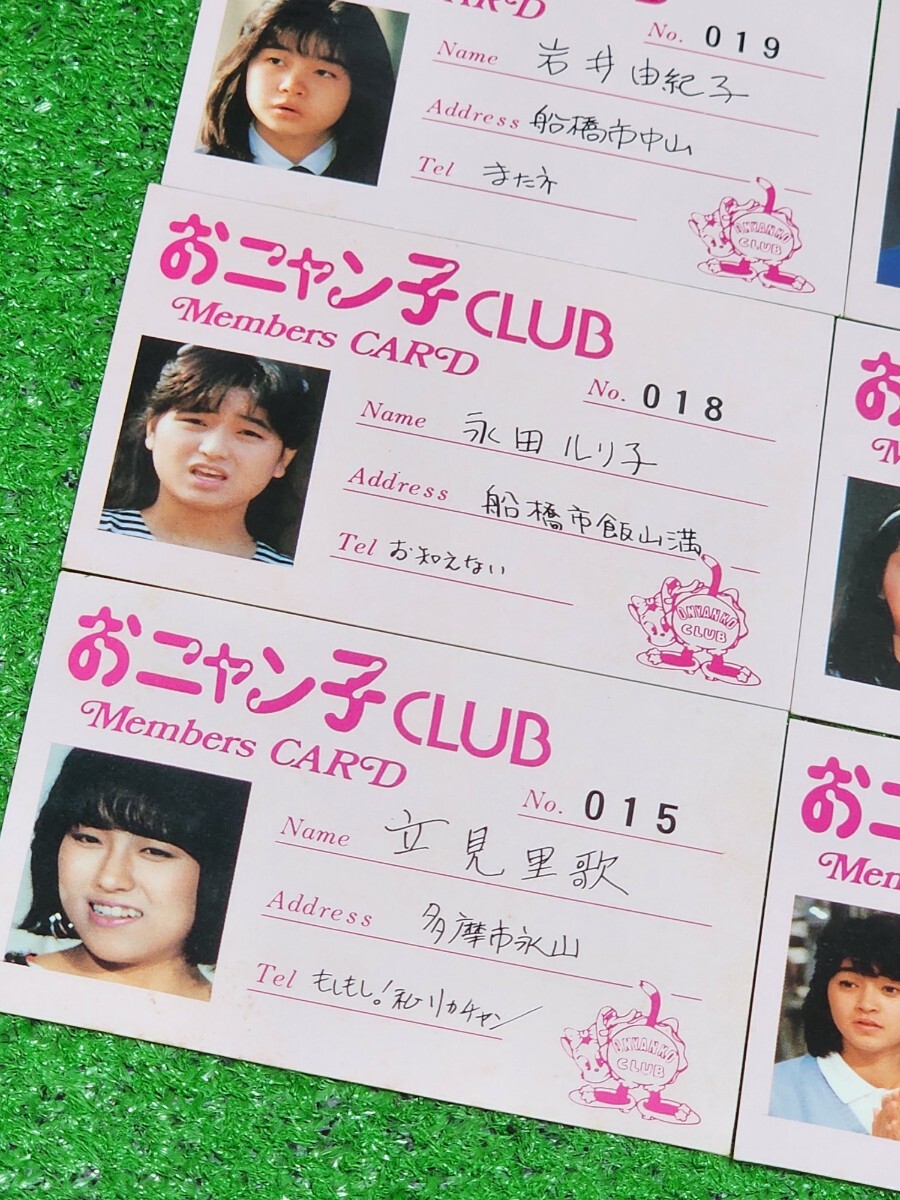 CARD
No. 019
Name 岩井由紀子
Address 船橋市中山
Tel まだネ
ONYANKO
CLUB
おニャン子CLUB
Members CARD
No. 018
Name 永田ルリ子
Address 船橋市飯山満
Tel お知えない
ONYANKO
CLUB
おニャン子CLUB
Members CARD
No. 015
Name 立見里歌
Address 多摩市永山
Tel もしもし!私リカチャン
ONYANKO
CLUB
お
M
おニ
Mem